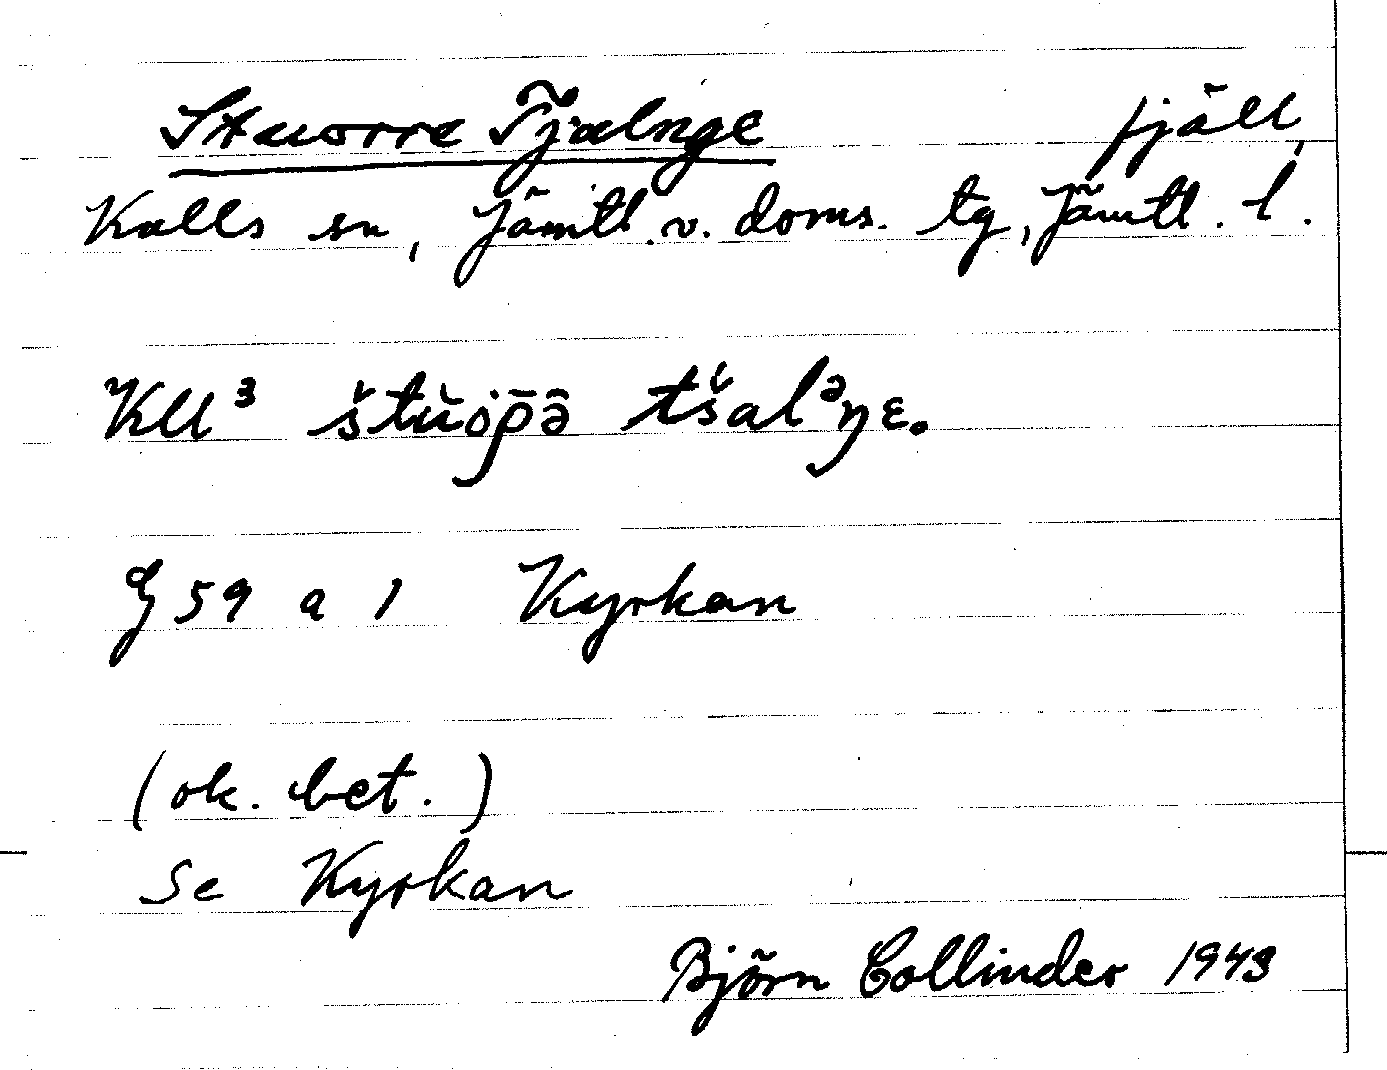 Stuorre Tjalnge fjäll,
Kalls sn, Jämtl. v. doms. tg, Jämtl. l.
Kll³ štŭo̯p̄ə̂ tš́alᵊŋɛ.
G 59 a 1 Kyrkan
(ok. bet.)
Se Kyrkan
Björn Collinder 1943